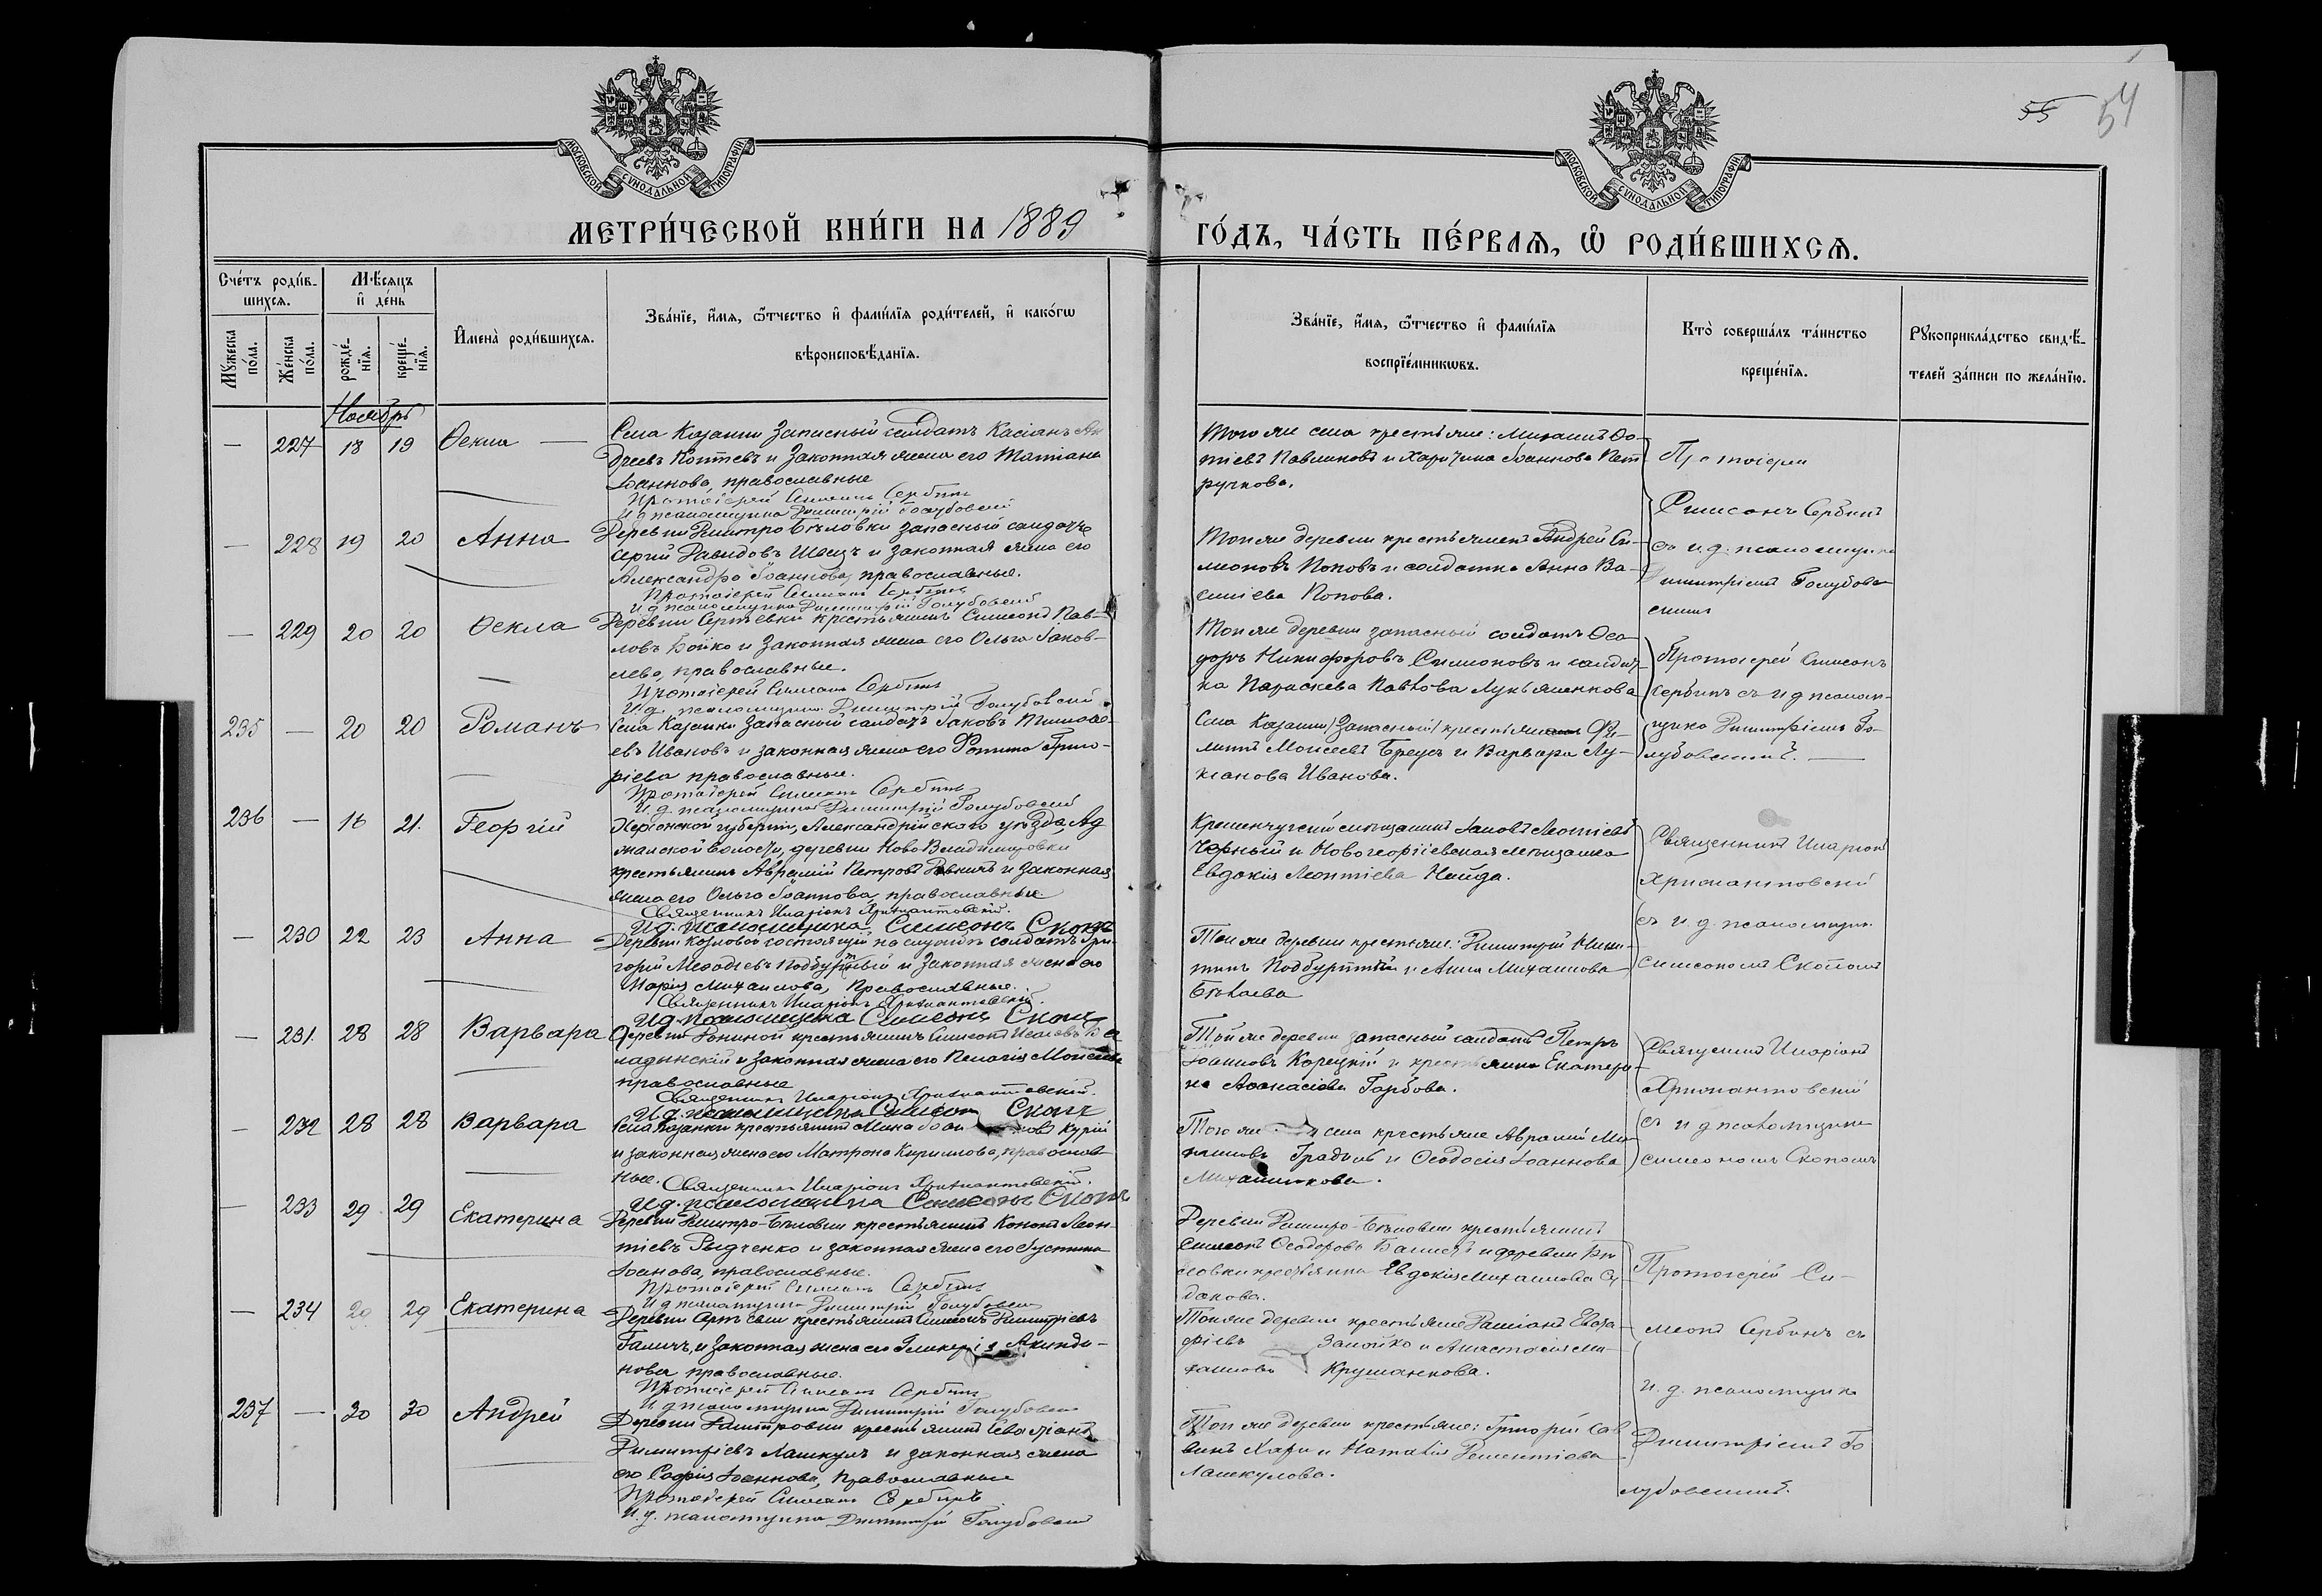 55 54
МОСКОВСКОЙ СѴНОДАЛЬНОЙ ТИПОГРАФІИ
МОСКОВСКОЙ СѴНОДАЛЬНОЙ ТИПОГРАФІИ
МЕТРИ́ЧЕСКОЙ КНИ́ГИ НА 1889
ГО́ДЪ, ЧА́СТЬ ПЕ́РВАѦ, Ѡ҆ РОДИ́ВШИХСѦ.
Сче́тъ роди́вшихсѧ.
Мꙋ́жеска по́ла.
Же́нска по́ла.
Мѣ́сѧцъ и҆ де́нь
рожде́нїѧ.
креще́нїѧ.
И҆мена̀ роди́вшихсѧ.
Зва́нїе, и҆́мѧ, ѻ҆́тчество и҆ фами́лїѧ роди́телей, и҆ како́гѡ
вѣроисповѣ́данїѧ.
Зва́нїе, и҆́мѧ, ѻ҆́тчество и҆ фами́лїѧ
воспрїе́мникѡвъ.
Кто̀ соверша́лъ та́инство
креще́нїѧ.
Рꙋкоприкла́дство свидѣ́-
телей за́писи по жела́нїю.
Ноябрь
— 227 18 19 Ѳекла
Села Казанки Запасный солдатъ Касіанъ Ан
дреевъ Коптевъ и Законная жена его Татіана
Іоаннова, православные
Протоіерей Симеонъ Сербинъ
И д псаломщика Димитрій Голубовскій
Того же села крестьяне: Михаилъ Фо-
тіевъ Павликовъ и Харитина Іоаннова Пет
ручкова.
Протоіерей
Симеонъ Сербинъ
съ и. д. псаломщика
Димитріемъ Голубов
скимъ
— 228 19 20 Анна
Деревни Димитро Бѣловки запасный солдатъ
Сергій Давидовъ Швецъ и законная жена его
Александра Іоаннова, православные.
Протоіерей Симеонъ Сербинъ
И д псаломщика Димитрій Голубовскій
Той же деревни крестьянинъ Андрей Си-
меоновъ Поповъ и солдатка Анна Ва-
силіева Попова.
— 229 20 20 Ѳекла
Деревни Сергѣевки крестьянинъ Симеонъ Пав-
ловъ Бойко и Законная жена его Ольга Іаков-
лева, православные.
Протоіерей Симеонъ Сербинъ
И.д. псаломщика Димитрій Голубовскій
Той же деревни запасный солдатъ Ѳео-
доръ Никифоровъ Симоновъ и солдат-
ка Параскева Павлова Лукьяненкова
Протоіерей Симеонъ
Сербинъ съ и д псалом-
щика Димитріемъ Го-
лубовскимъ. —
235 — 20 20 Романъ
Села Казанки Запасный солдатъ Іаковъ Тимоѳе-
евъ Ивановъ и законная жена его Фотина Григо-
ріева православные.
Протоіерей Симеонъ Сербинъ
И.д. псаломщика Димитрій Голубовскій
Села Казанки /Запасный/ крестьянинъ Фи-
липпъ Моисеевъ Бреусъ и Варвара Лу-
кіанова Иванова.
236 — 16 21. Георгій
Херсонской губерніи, Александрійскаго уѣзда, Ад
жамской волости, деревни Ново Владимировки
крестьянинъ Аврамій Петровъ и законная
жена его Ольга Іоаннова, православные
Священникъ Иларіонъ Хрисанѳовскій.
И.д. псаломщика Симеонъ Скопъ
Кременчугскій мѣщанинъ Іаковъ Леонтіевъ
Черный и Новогеоргіевская мѣщанка
Евдокія Леонтіева Найда.
Священникъ Иларіонъ
Хрисанѳовскій
съ и. д. псаломщика
Симеономъ Скопомъ
— 230 22 23 Анна
Деревни Козловой состоящій на службѣ солдатъ Гри-
горій Меѳодіевъ и Законная жена его
Марія Михаилова, Православные.
Священникъ Иларіонъ Хрисанѳовскій.
И д. псаломщика Симеонъ Скопъ
Той же деревни крестьяне: Димитрій Ники-
тинъ и Анна Михаилова
Бѣляева
— 231. 28 28 Варвара
Деревни крестьянинъ Симеонъ
и законная жена его Пелагія Моисеева
православные
Священникъ Иларіонъ Хрисанѳовскій.
И.д. псаломщика Симеонъ Скопъ
Той же деревни запасный солдатъ Петръ
Іоанновъ Корецкій и крестьянка Екатери-
на Аѳанасіева Горбова.
Священникъ Иларіонъ
Хрисанѳовскій
съ и д псаломщика
Симеономъ Скопомъ
— 232 28 28 Варвара
Села Казанки крестьянинъ Курій
и законная жена его Матрона Кириллова, православ
ные. Священникъ Иларіонъ Хрисанѳовскій.
И.д. псаломщика Симеонъ Скопъ
Того же села крестьяне Аврамій Ми-
и Ѳеодосія Іоаннова
— 233 29 29 Екатерина
Деревни Димитро-Бѣловки крестьянинъ Кононъ Леон-
тіевъ Рыдченко и законная жена его Іустина
Іоанова, православные.
Протоіерей Симеонъ Сербинъ
И д псаломщика Димитрій Голубовскій
Деревни Димитро-Бѣловки крестьянинъ
Симеонъ Ѳеодоровъ и деревни Бѣ
ловки крестьянка Евдокія Михаилова
дакова.
Протоіерей Си-
меонъ Сербинъ съ
и. д. псаломщика
Димитріемъ Го
лубовскимъ.
— 234 29 29 Екатерина
Деревни крестьянинъ Симеонъ Димитріевъ
Галичъ, и законная жена его Гликерія Акинди-
нова православные.
Протоіерей Симеонъ Сербинъ
И д псаломщика Димитрій Голубовскій
Той же деревни крестьяне Даміанъ Евста-
фіевъ и Анастасія Ми-
хаилова Крушанкова.
237 — 30 30 Андрей
Деревни Димитровки крестьянинъ Севастіанъ
Димитріевъ Лашкулъ и законная жена
его Софія Іоаннова, Православные
Протоіерей Симеонъ Сербинъ
И. д. псаломщика Димитрій Голубовскій
Той же деревни крестьяне: Григорій Сав
винъ и Наталія Дементіева
Лашкулова.